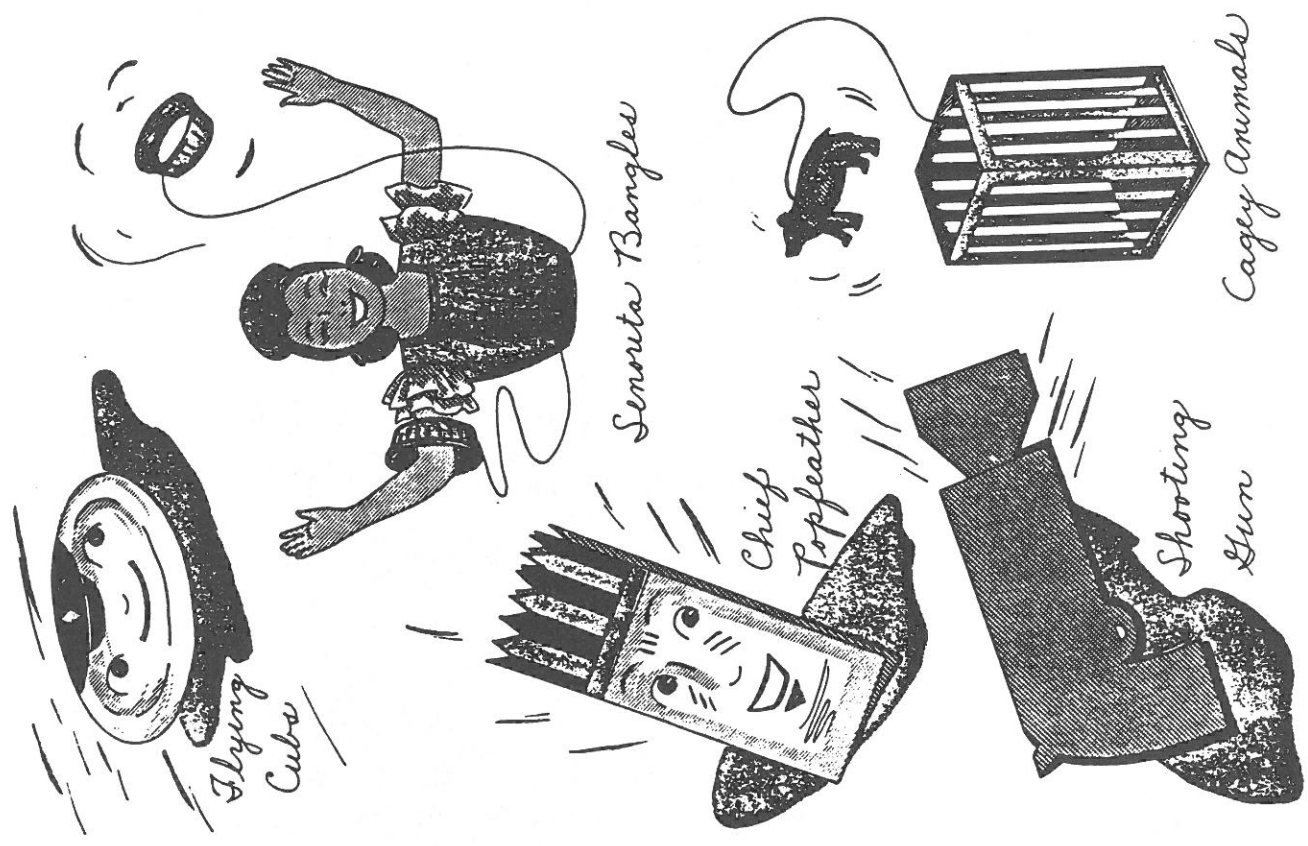 Flying
Cubs
Senorita Bangles
Chief
Popfeather
Shooting
Gun
Cagey Animals